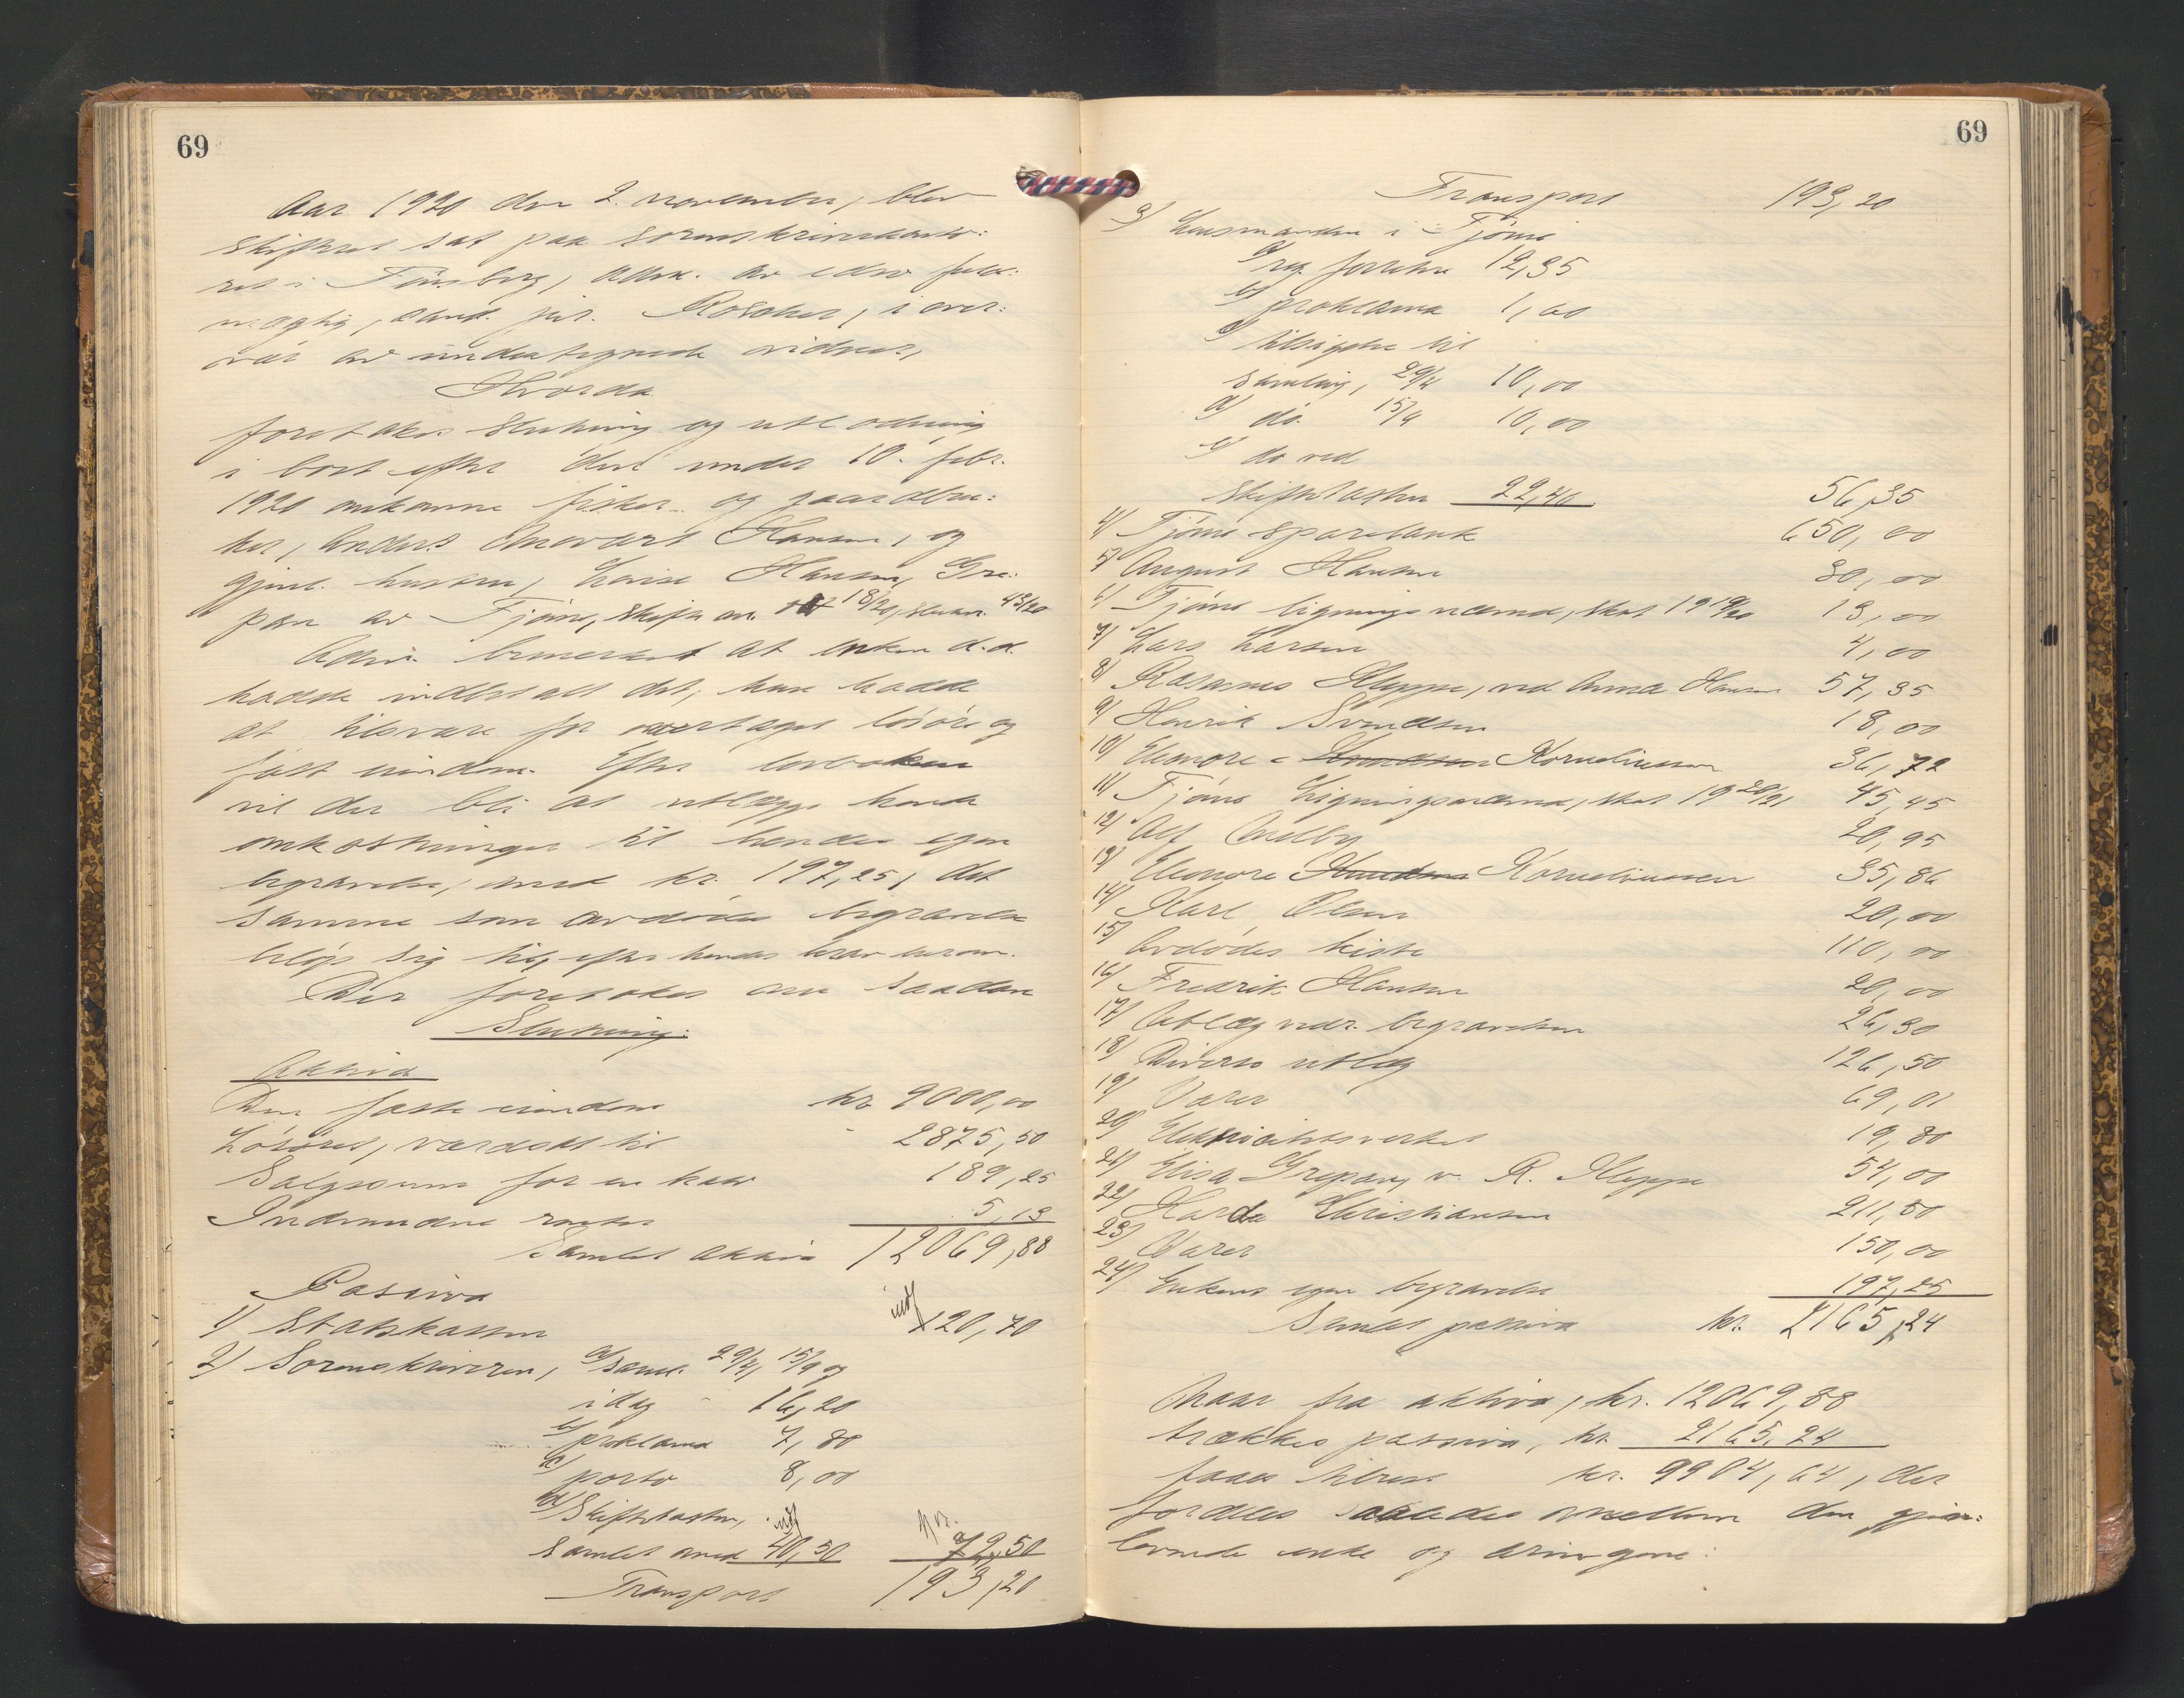 69
Aar 1920 den 2. november, blev
skifteret sat paa sorenskriverkonto:
ret i Tønsberg, adm. av edsv. fuld:
mægtig, cand. jur. i over:
vær av undertegnede vidner,
Hvorda
foretokes slutning og utlodning
i boet efter den under 10. febr.
1920 omkomne fisker- og gaardbru:
ker, Anders Hansen, og
gjenl. hustru, Lovise Hansen, Gre:
pan av Tjømø, skifte anm. 18/20, 43/20
Adm. bemerket at enken d.d.
hadde indbetalt det, hun hadde
at tilsvare for overtaget løsøre og
fast eiendom. Efter lovboken
vil der bli at utlægge hende
omkostninger til hendes egen
begravelse, med kr. 197,25, det
samme som avdødes begravelse
beløp sig til, efter hendes krav herom.
Der foretokes en saadan
Slutning:
Aktiva
Den faste eiendom kr. 9000,00
Løsøret, værdsat til - 2875,50
Salgssum for en kalv 189,25
Indvundne renter 5,13
Samlet aktiva 12069,88
Passiva
1) Statskassen indf 120,70
2) Sorenskriveren, a) saml. 29/4, 15/9 og
idag - 16,20
b) proklama 7,80
c) porto 8,00
d) Skiftetakster, indf
samlet med 40,50 72,50
Transport 193,20
69
Transport 193,20
3) Lensmanden i Tjømø
a) reg. forretn. 12,35
b) proklama 1,60
c) tilsigelse til
samling, 29/4 10,00
d) do. 15/9 10,00
e) do ved
skiftetakster 22,40 56,35
4) Tjømø sparebank 650,00
5) August Hansen 30,00
6) Tjømø ligningsnævnd, skat 1919/20 13,00
7) Lars Larsen 4,00
8) Rasmus Kleppe, ved Anna Hansen 57,35
9) Henrik Svendsen 18,00
10) Eleonore Korneliussen 36,72
11) Tjømø Ligningsnævnd, skat 1920/21 45,45
12) Alf Melby 20,95
13) Eleonore Korneliussen 35,86
14) Karl Olsen 20,00
15) Avdødes kiste 110,00
16) Fredrik Hansen 20,00
17) Utlæg vedr. begravelsen 26,30
18) Diverse utlæg 126,50
19) Varer 69,01
20) Elektricitetsverket 19,80
21) Elisa Grepan, v. R. Kleppe 54,00
22) Harda Kristiansen 211,50
23) Varer 150,00
24) Enkens egen begravelse 197,25
Samlet passiva kr. 2165,24
Naar fra aktiva, kr. 12069,88
trækkes passiva, kr. 2165,24
faaes tilrest kr. 9904,64, der
fordeles saaledes mellem den gjen:
levende enke og arvingene: